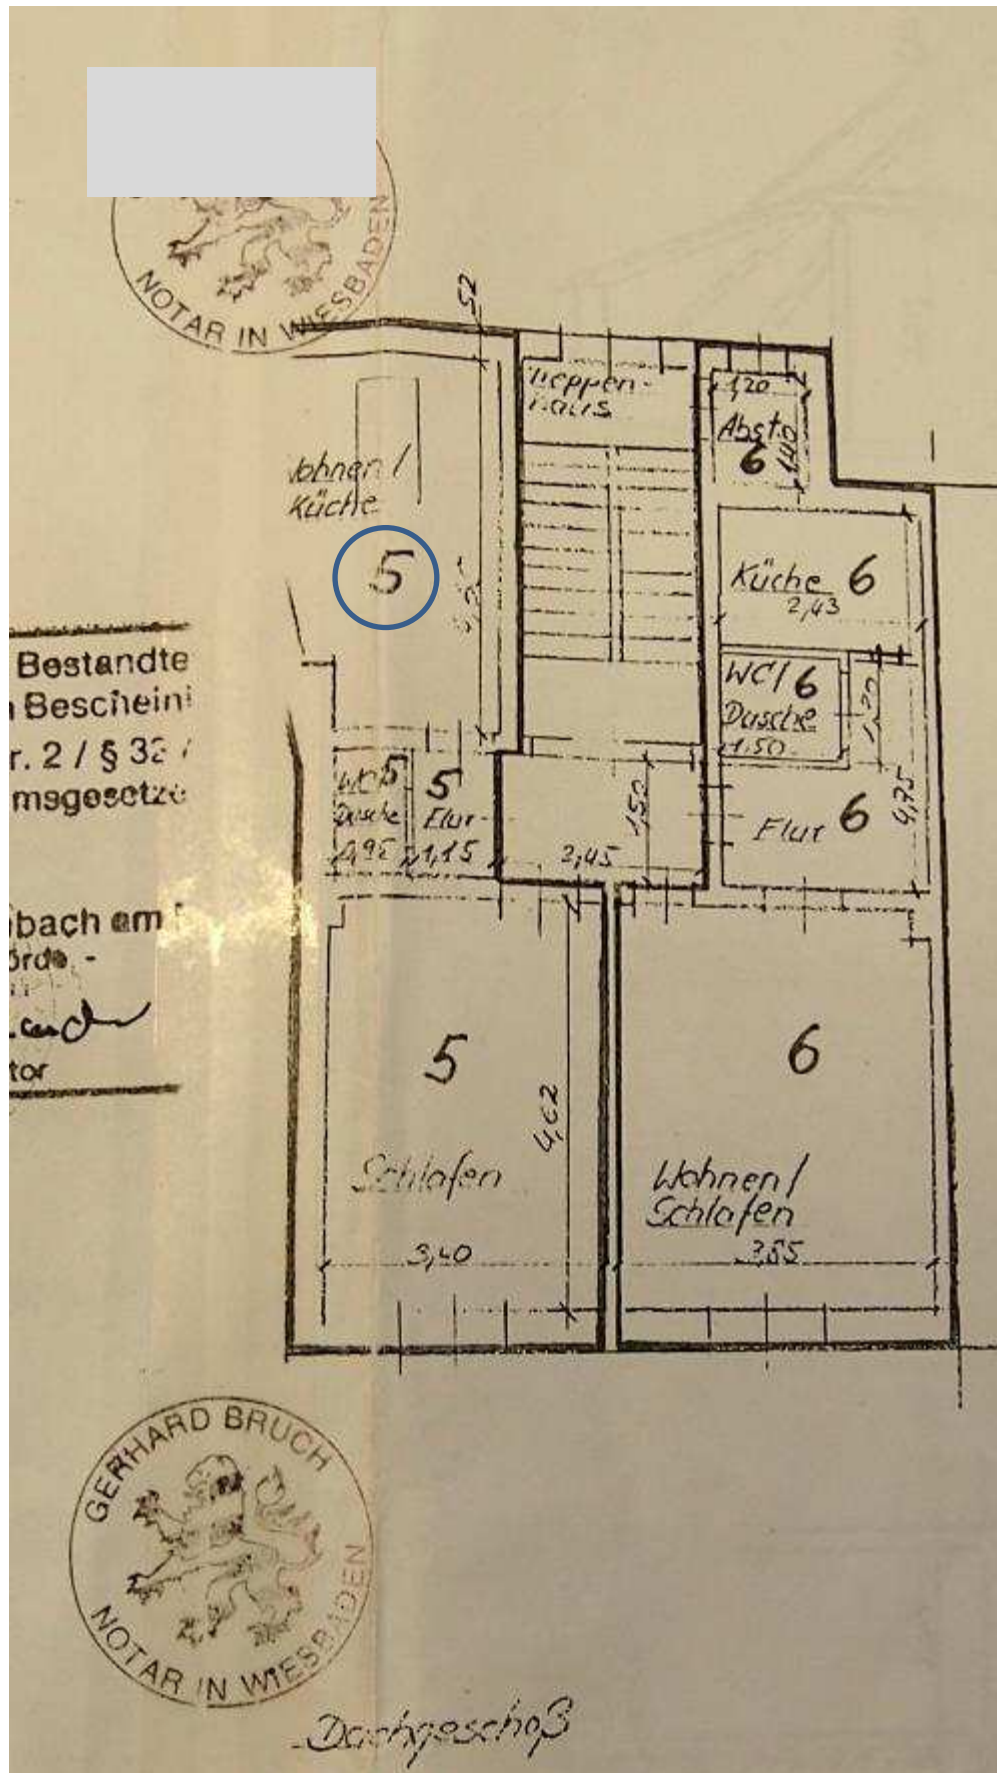 NOTAR IN WIESBADEN
52
Treppen-
haus
1,20
Abst.
6
1,40
Wohnen /
Küche
5
Küche 6
2,43
Bestandte
Bescheini
r. 2 / § 32
msgesetze
WC / 6
Dusche
1,50
1,20
WC 5
Dusche
0,95
5
Flur
1,15
1,50
2,45
Flur 6
4,75
bach am
örde -
tor
5
Schlafen
4,62
3,40
6
Wohnen /
Schlafen
GERHARD BRUCH
NOTAR IN WIESBADEN
Dachgeschoß